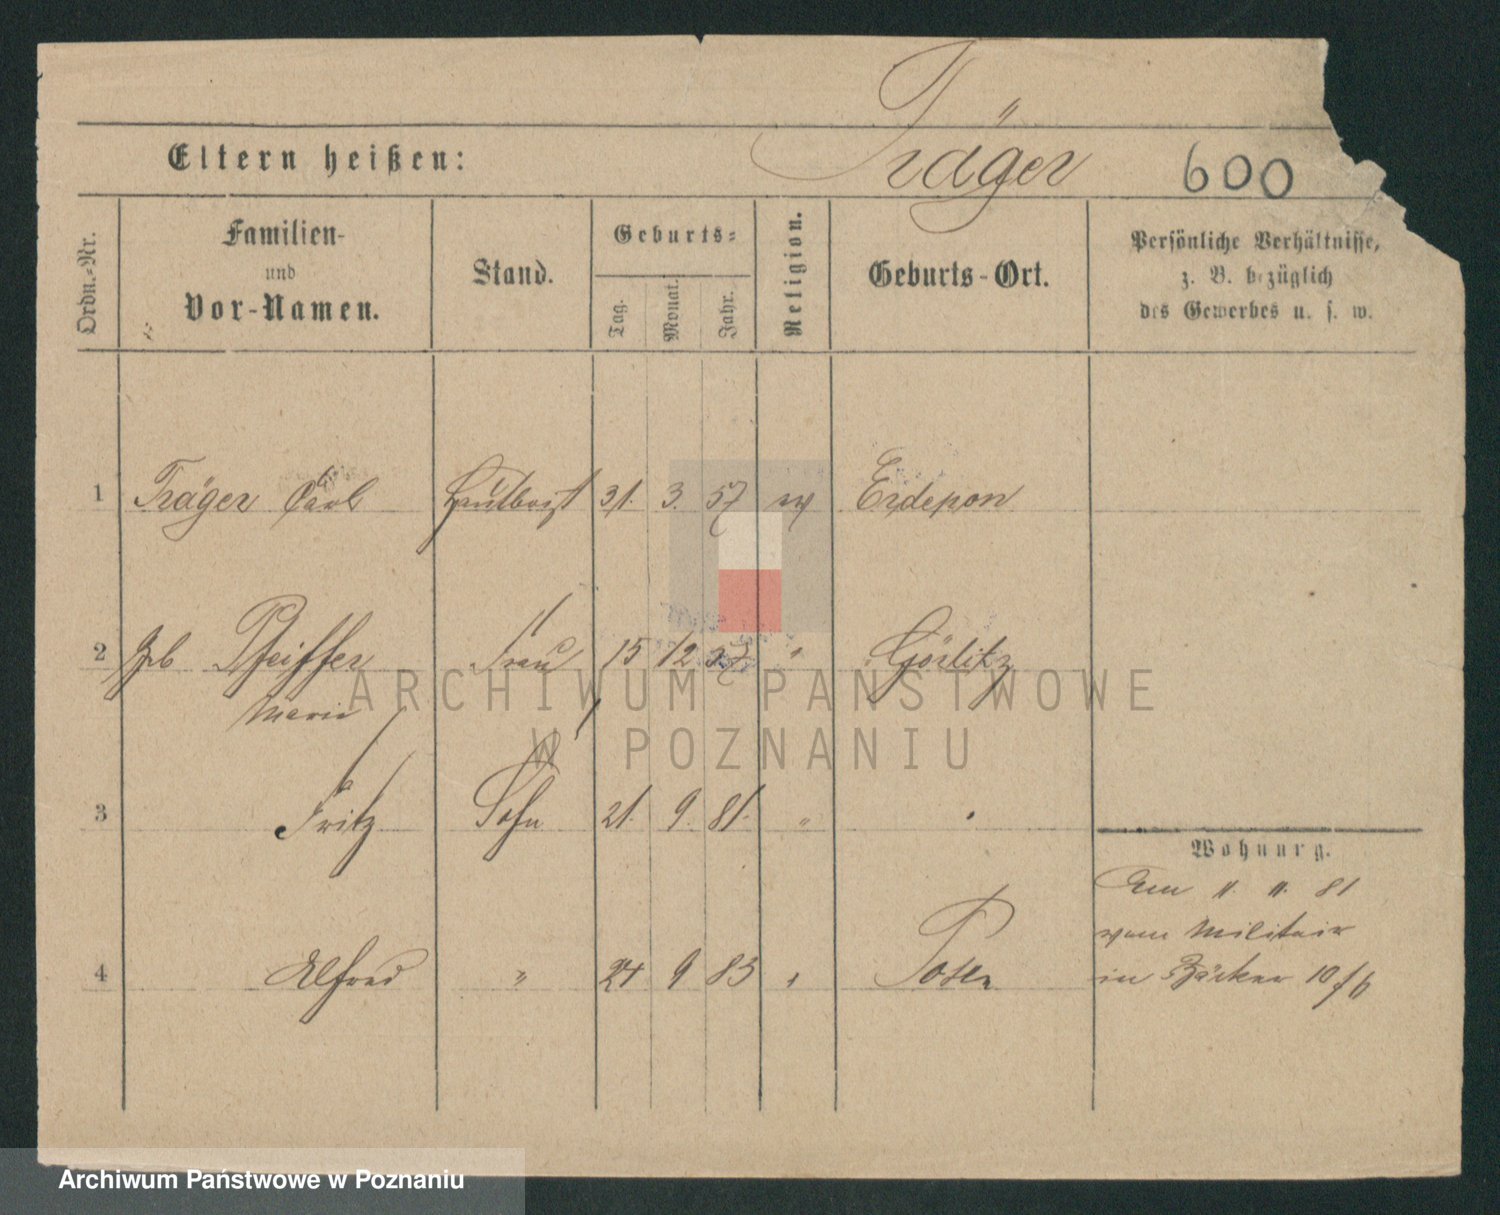 Träger
Eltern heißen:
600
Ordn.-Nr.
Familien-
und
Vor-Namen.
Stand.
Geburts-
Tag.
Monat.
Jahr.
Religion.
Geburts-Ort.
Persönliche Verhältnisse,
z. B. bezüglich
des Gewerbes u. s. w.
1 Träger Carl 31. 3. 57 ev
2 geb Pfeiffer Frau 15 12 57 " Görlitz
Marie
3 Fritz Sohn 21. 9. 81. "
Wohnung.
Am 11. 11. 81
vom Militair
4 Alfred " 24 9 83 " Posen
in Bäcker 10/6
ARCHIWUM PAŃSTWOWE
W POZNANIU
Archiwum Państwowe w Poznaniu